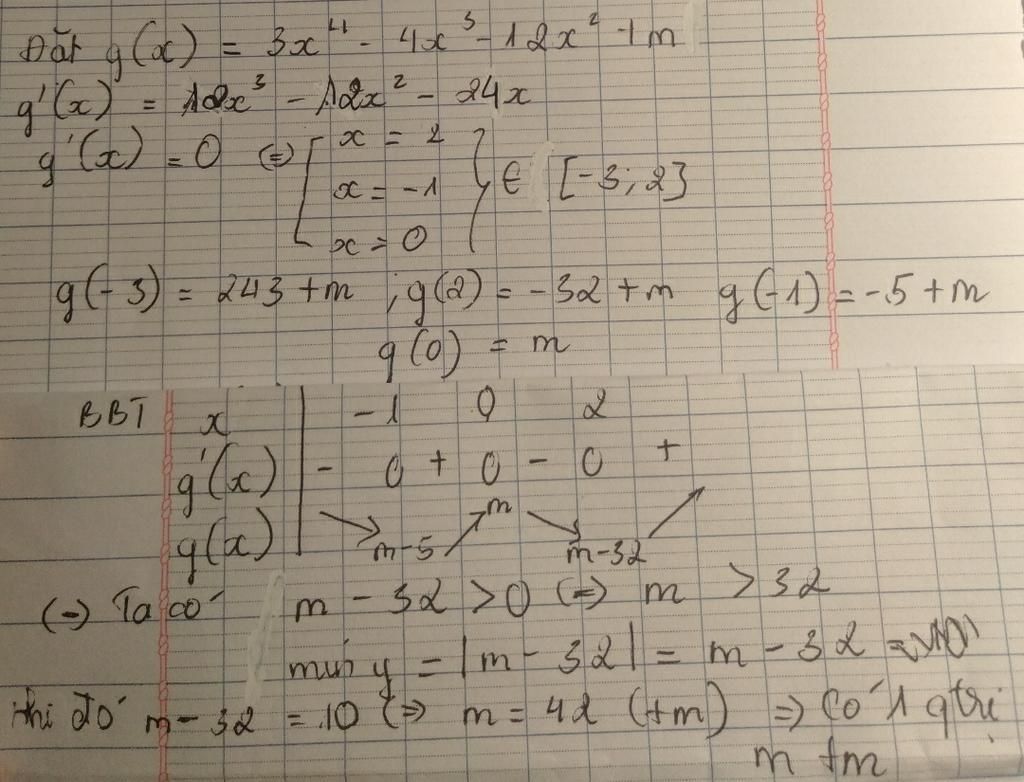 Đặt g(x) = 3x⁴ - 4x³ - 12x² + m
g'(x) = 12x³ - 12x² - 24x
g'(x) = 0 (=) [ x = 2
x = -1 } ∈ [-3; 2]
x = 0
g(-3) = 243 + m ; g(2) = -32 + m g(-1) = -5 + m
g(0) = m
BBT x | -1 0 2
g'(x) | - 0 + 0 - 0 +
g(x) | ↘ m-5 ↗ m ↘ m-32 ↗
(-) Ta có m - 32 > 0 (=) m > 32
min y = |m - 32| = m - 32
khi đó m - 32 = 10 (=) m = 42 (tm) => Có 1 gtrị
m tm